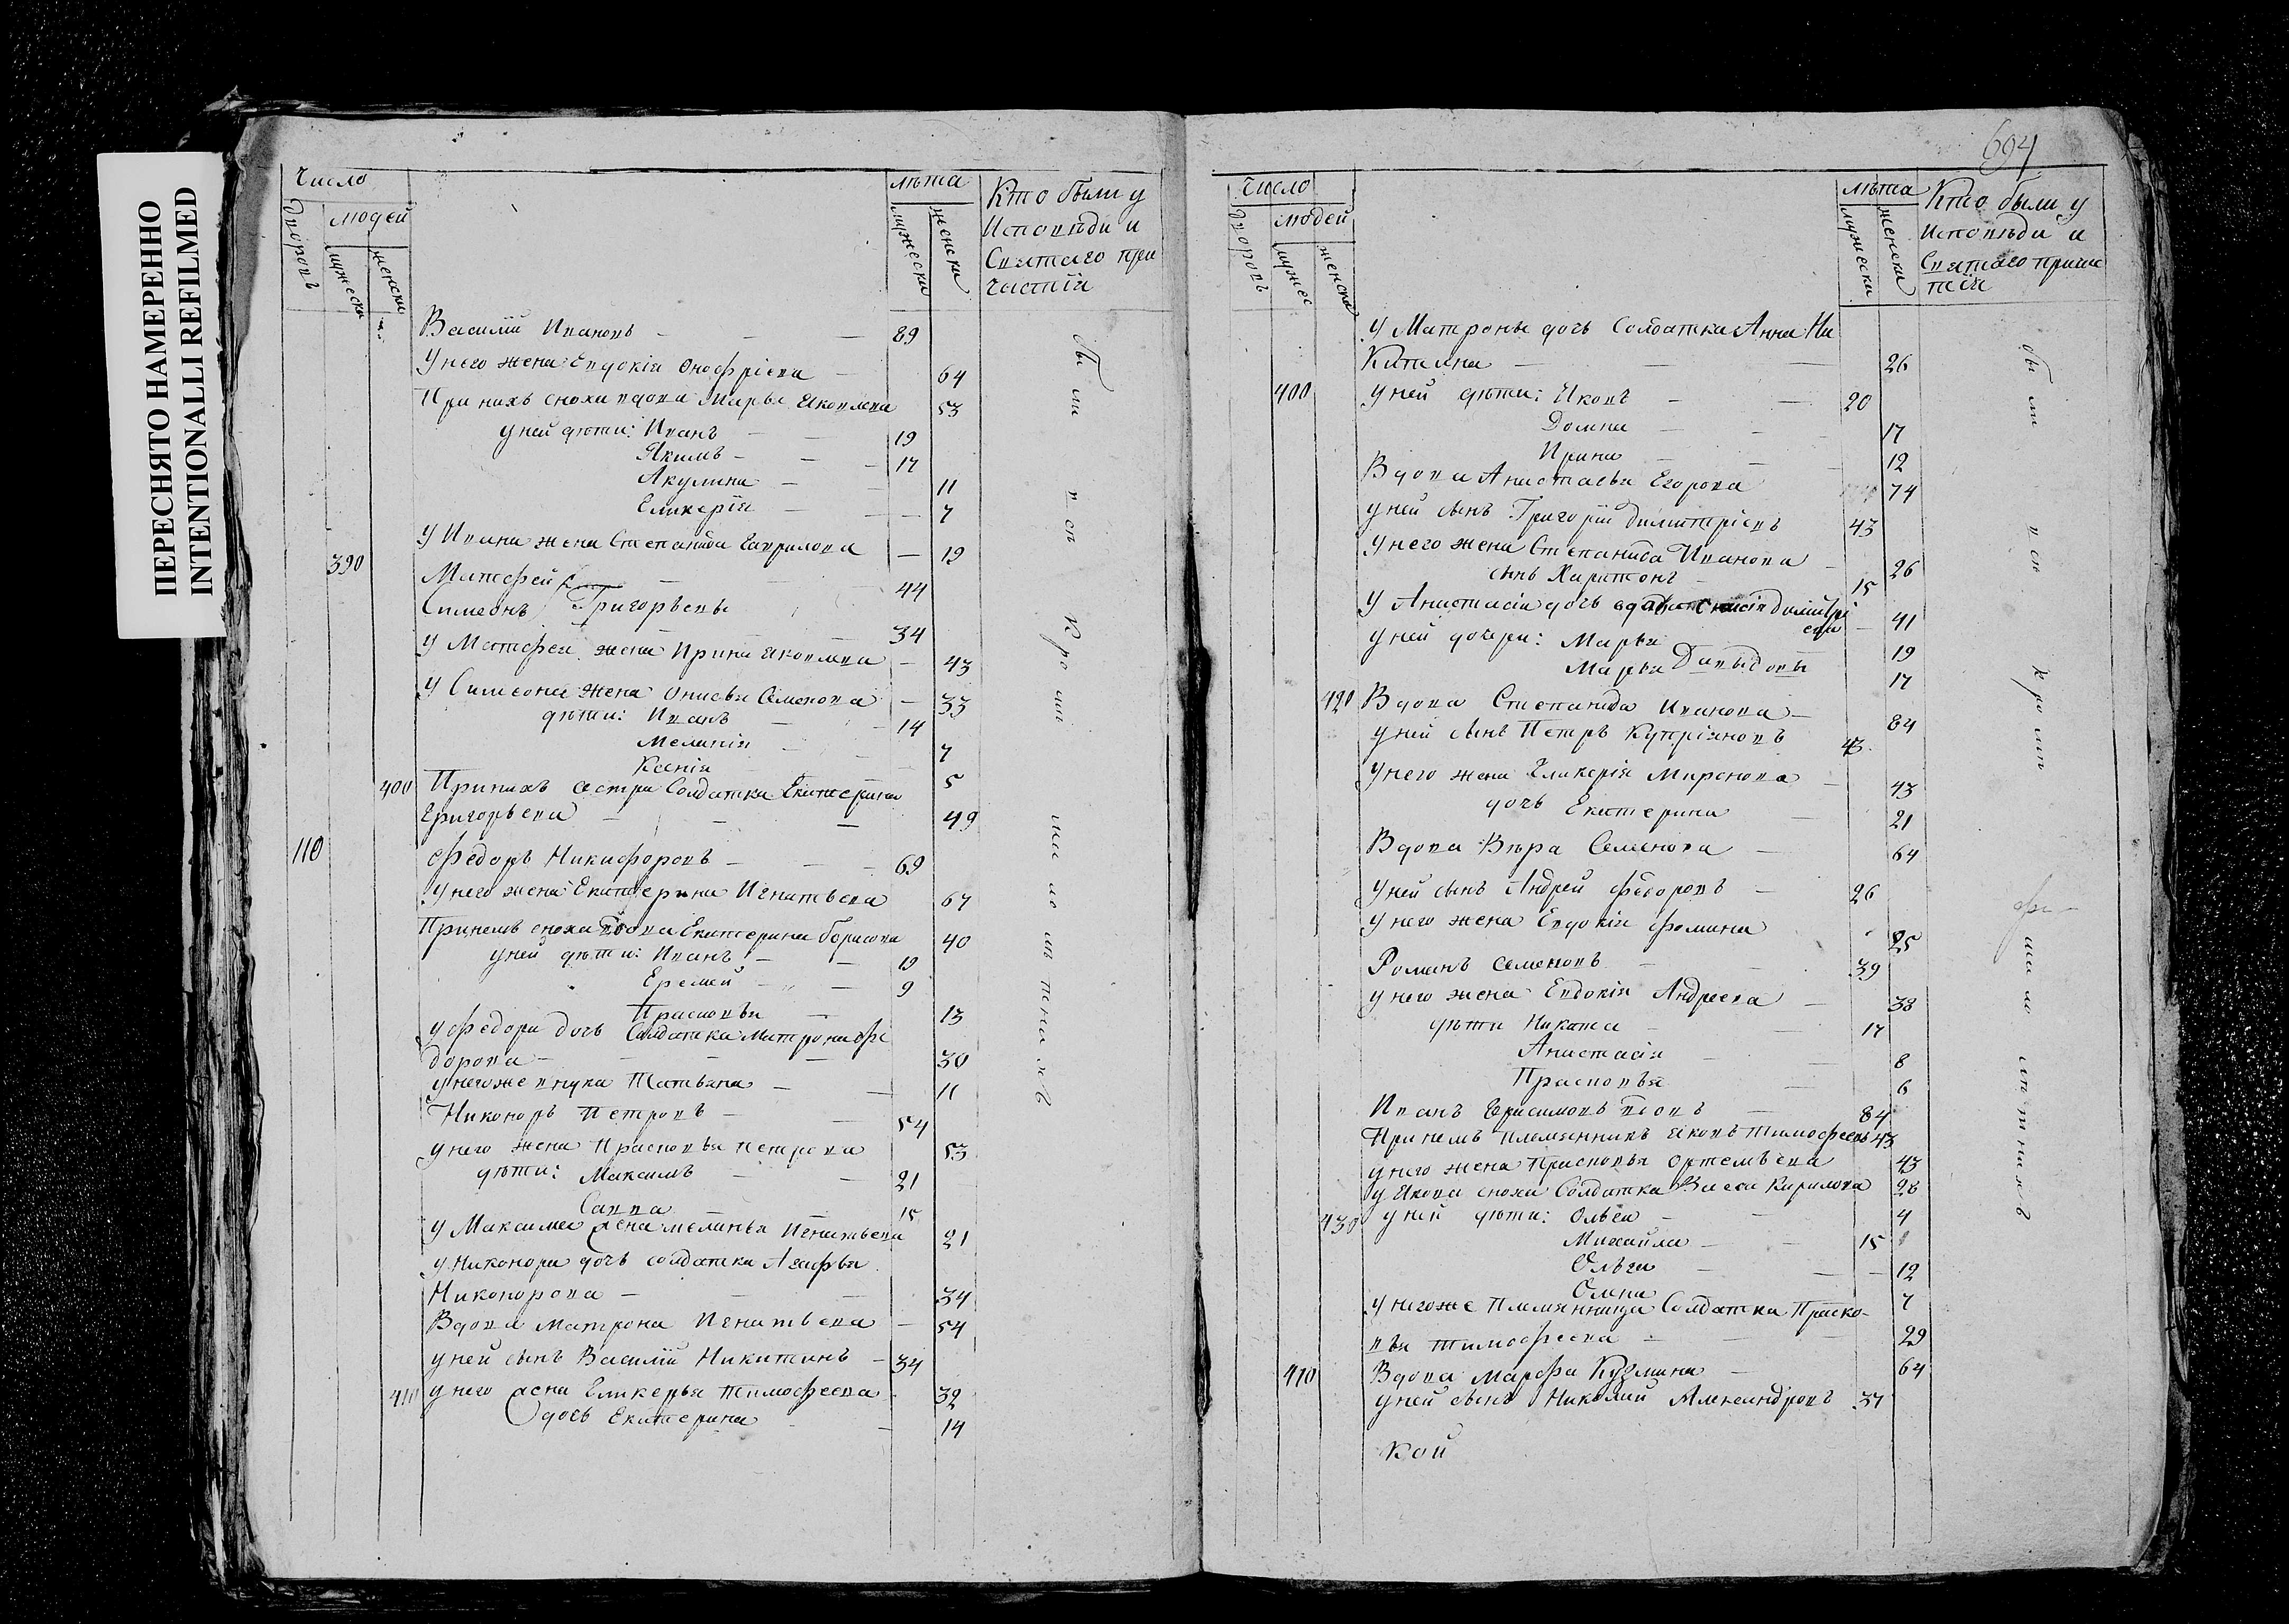 ПЕРЕСНЯТО НАМЕРЕННО
INTENTIONALLI REFILMED
Число
лѣта
Кто были у
Исповѣди и
Святаго при
частїя
дворовъ
людей
мужеска
женска
мужески
женски
Василїй Ивановъ - - - 89
У него жена Евдокїя Онофрїева - 64
При нихъ сноха вдова Марья Яковлева 53
у ней дѣти: Иванъ - - 19
Якимъ - - - 17
Акулина - - 11
Гликерїя - - 7
У Ивана жена Степанида Гаврилова - 19
390
Матфей - - 44
Симеонъ Григорьевы 34
У Матфея жена Ирина Яковлева - 43
У Симеона жена Онисья Семенова - 33
дѣти: Иванъ - - 14
Меланїя - - 7
Ксенїя 5
400 При нихъ сестра Солдатка Екатерина
Григорьева - - - 49
110 Федоръ Никифоровъ - - - 69
У него жена Екатерина Игнатьева 67
При немъ сноха вдова Екатерина Борисова 40
у ней дѣти: Иванъ - - 19
Еремей - - 9
Прасковья - 13
У Федора дочь Солдатка Матрона Фе
дорова - - - 30
У него же внука Татьяна - - 11
Никоноръ Петровъ - - 54
у него жена Прасковья Петрова 53
дѣти: Максимъ - - 21
Савва - - 15
У Максима жена Меланья Игнатьева 21
У Никонора дочь солдатка Агафья
Никонорова - - - 34
Вдова Матрона Игнатьева - 54
у ней сынъ Василїй Никитинъ - 34
410 у него жена Гликерья Тимофеева - 32
дочь Екатерина - - 14
694
Число
лѣта
Кто были у
Исповѣди и
Святаго прича
стїя
дворовъ
людей
мужес
женска
мужески
женски
У Матроны дочь Солдатка Анна Ни
китина - - - 26
400 У ней дѣти: Яковъ - - 20
Домна - - 17
Ирина - - 12
Вдова Анастасья Егорова 74
у ней сынъ Григорїй Димитрїевъ 43
У него жена Степанида Иванова - 26
сынъ Харитонъ - 15
У Анастасїи дочь Димитрї
ева - 41
у ней дочери: Марья 19
Марья Давыдовы 17
420 Вдова Степанида Иванова - 84
у ней сынъ Петръ Купрїяновъ 43
У него жена Гликерїя Миронова - 43
дочь Екатерина - 21
Вдова Вѣра Семенова - 64
У ней сынъ Андрей Федоровъ - 26
У него жена Евдокїя Фомина 25
Романъ Семеновъ - - 39
У него жена Евдокїя Андреева - 38
дѣти Никита - - 17
Анастасїя - - 8
Прасковья - 6
Иванъ Герасимовъ вдовъ - 84
При немъ племянникъ Яковъ Тимофеевъ 43
у него жена Прасковья Ортемьева 43
у Якова сноха Солдатка Васса Кирилова 26
430 у ней дѣти: Ольга - - 4
Михайла - - 15
Ольга - - - 12
7
У него же племянница Солдатка Праско-
вья Тимофеева - - - 29
410 Вдова Марфа Кузмина - 64
У ней сынъ Николай Александровъ 37
кой